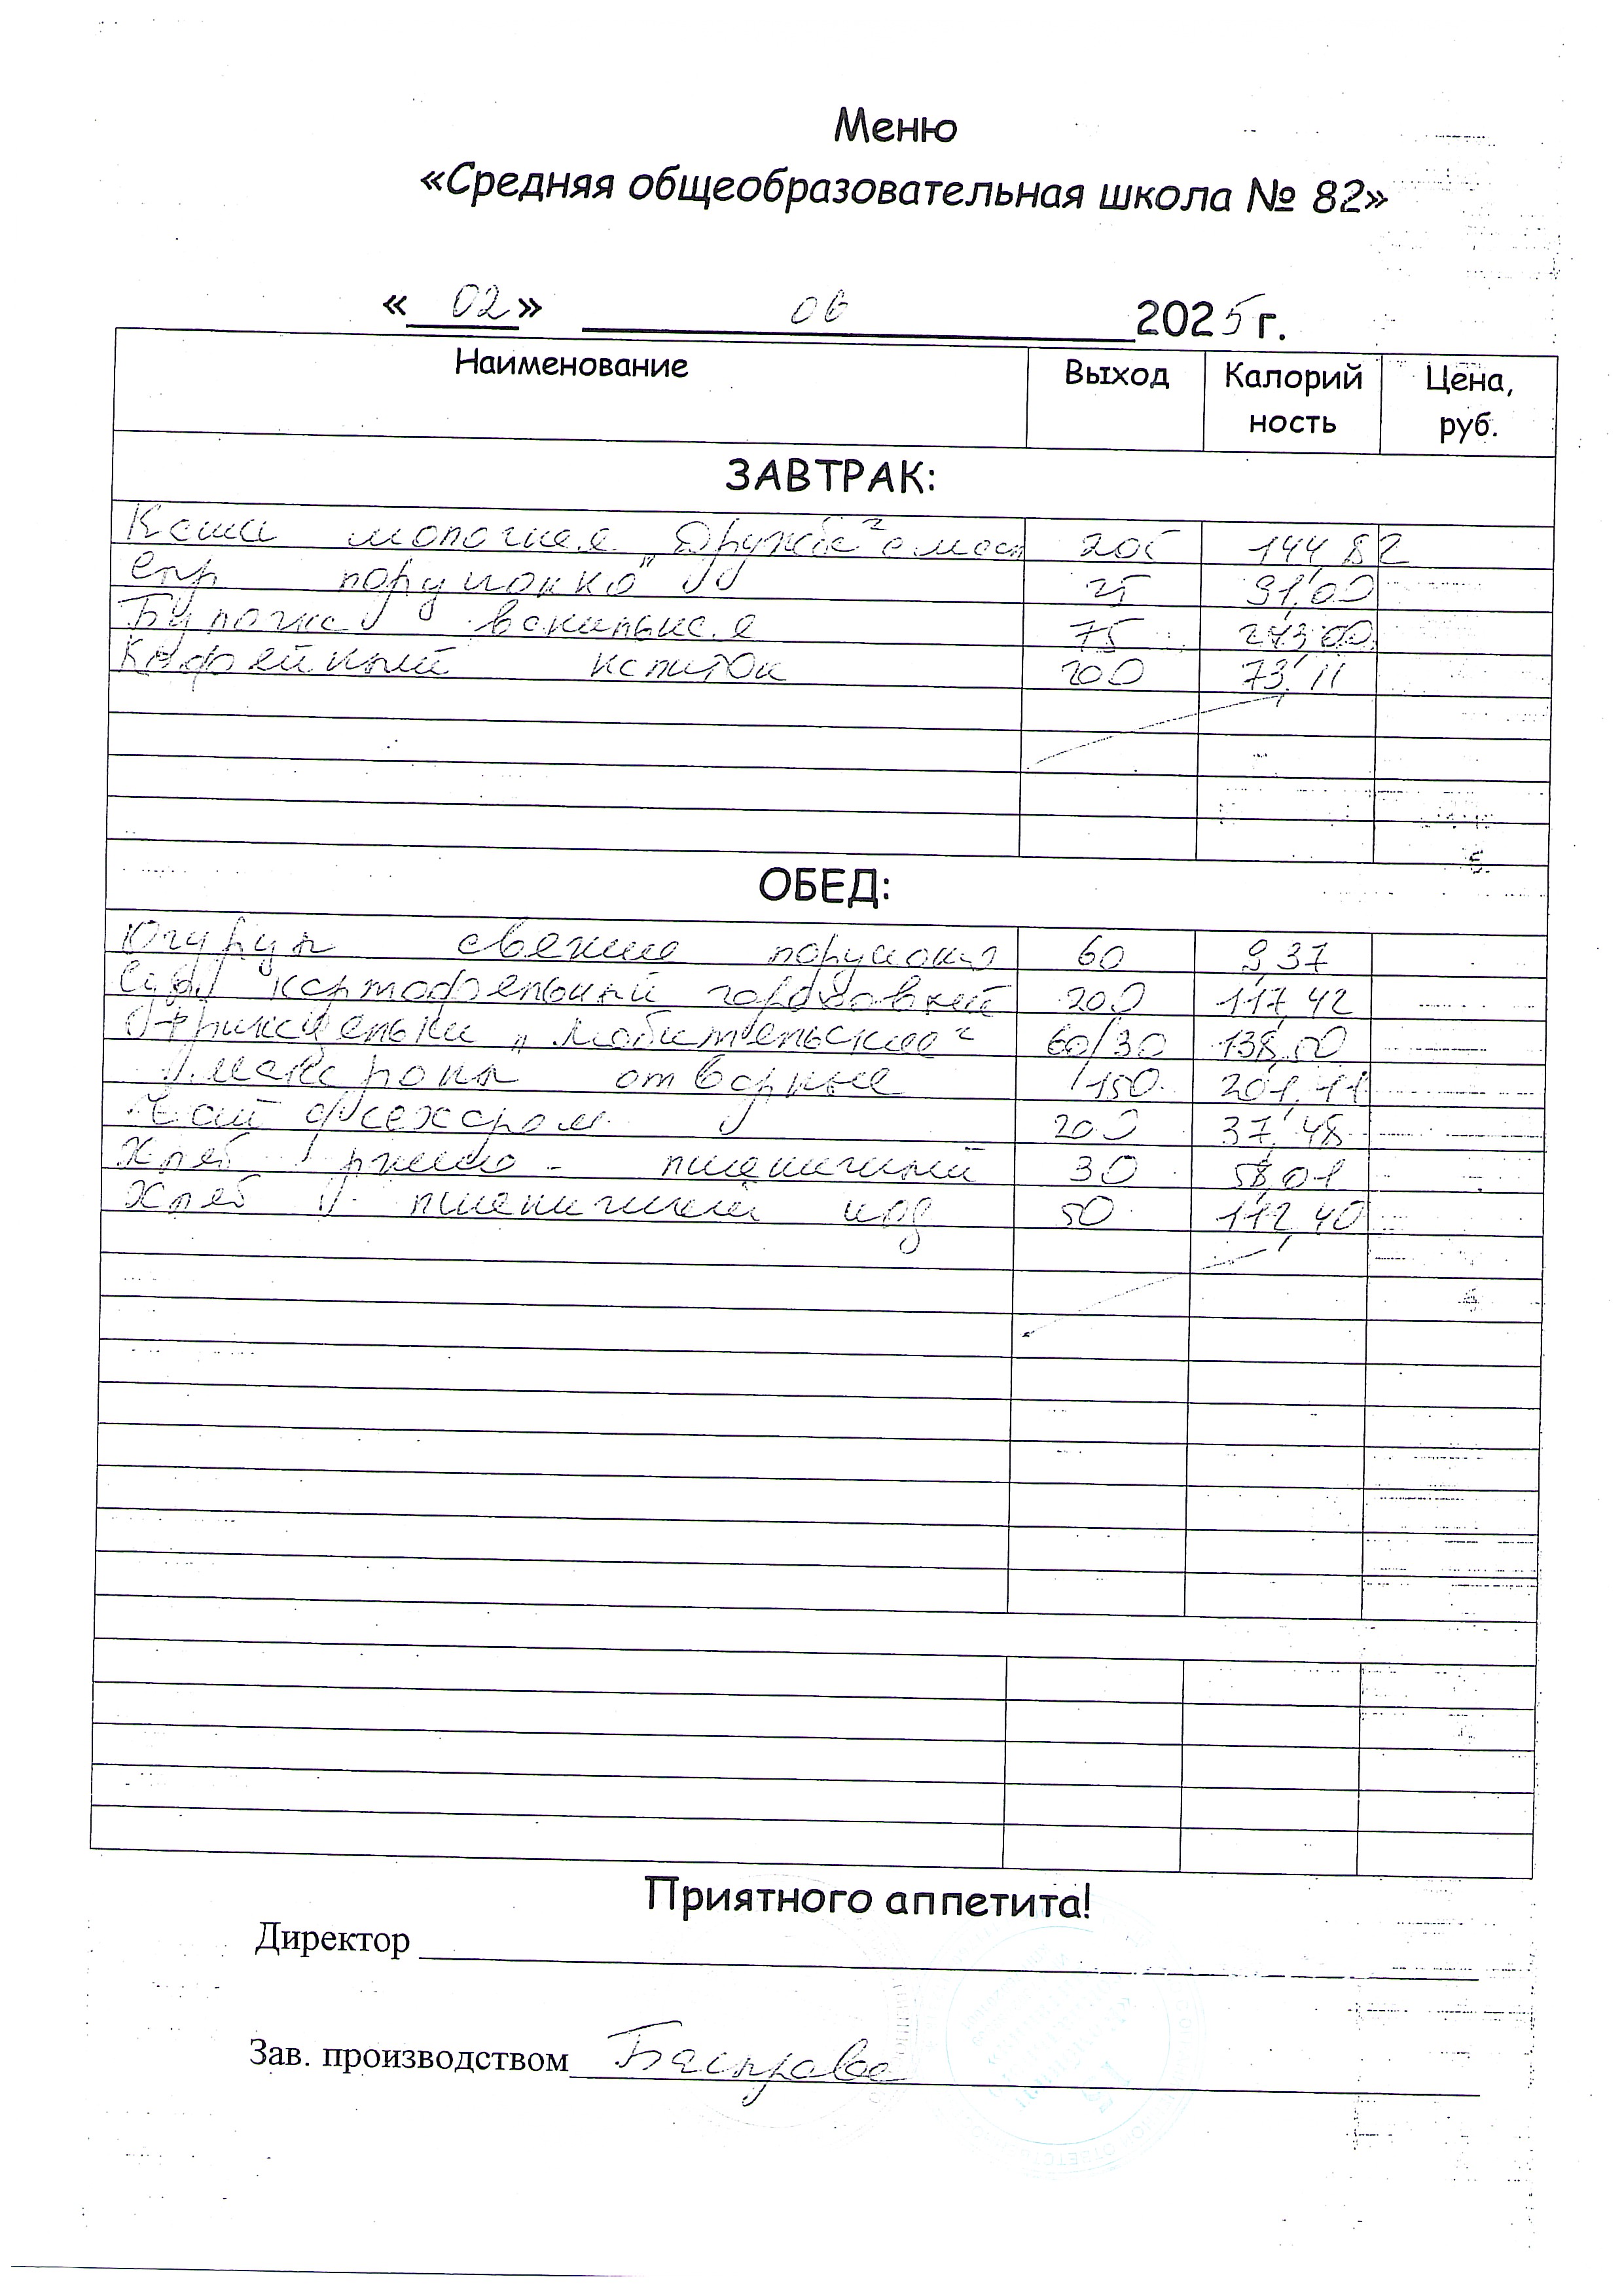 Меню
«Средняя общеобразовательная школа № 82»
« 02 » 06 2025 г.
Наименование Выход Калорий Цена,
ность руб.
ЗАВТРАК:
Каша молочная „Дружба" с масл 205 144,82
Сыр порционно 25 91,00
Булочка ванильная 75 243,00
Кофейный напиток 200 73,11
ОБЕД:
Огурцы свежие порционно 60 9,37
Суп картофельный гороховый 200 117,42
Фрикадельки „Любительские" 60/30 138,00
Макароны отварные /150 201,11
Чай с сахаром 200 37,48
Хлеб ржано-пшеничный 30 58,01
Хлеб пшеничный йод 50 112,40
Приятного аппетита!
Директор
Зав. производством